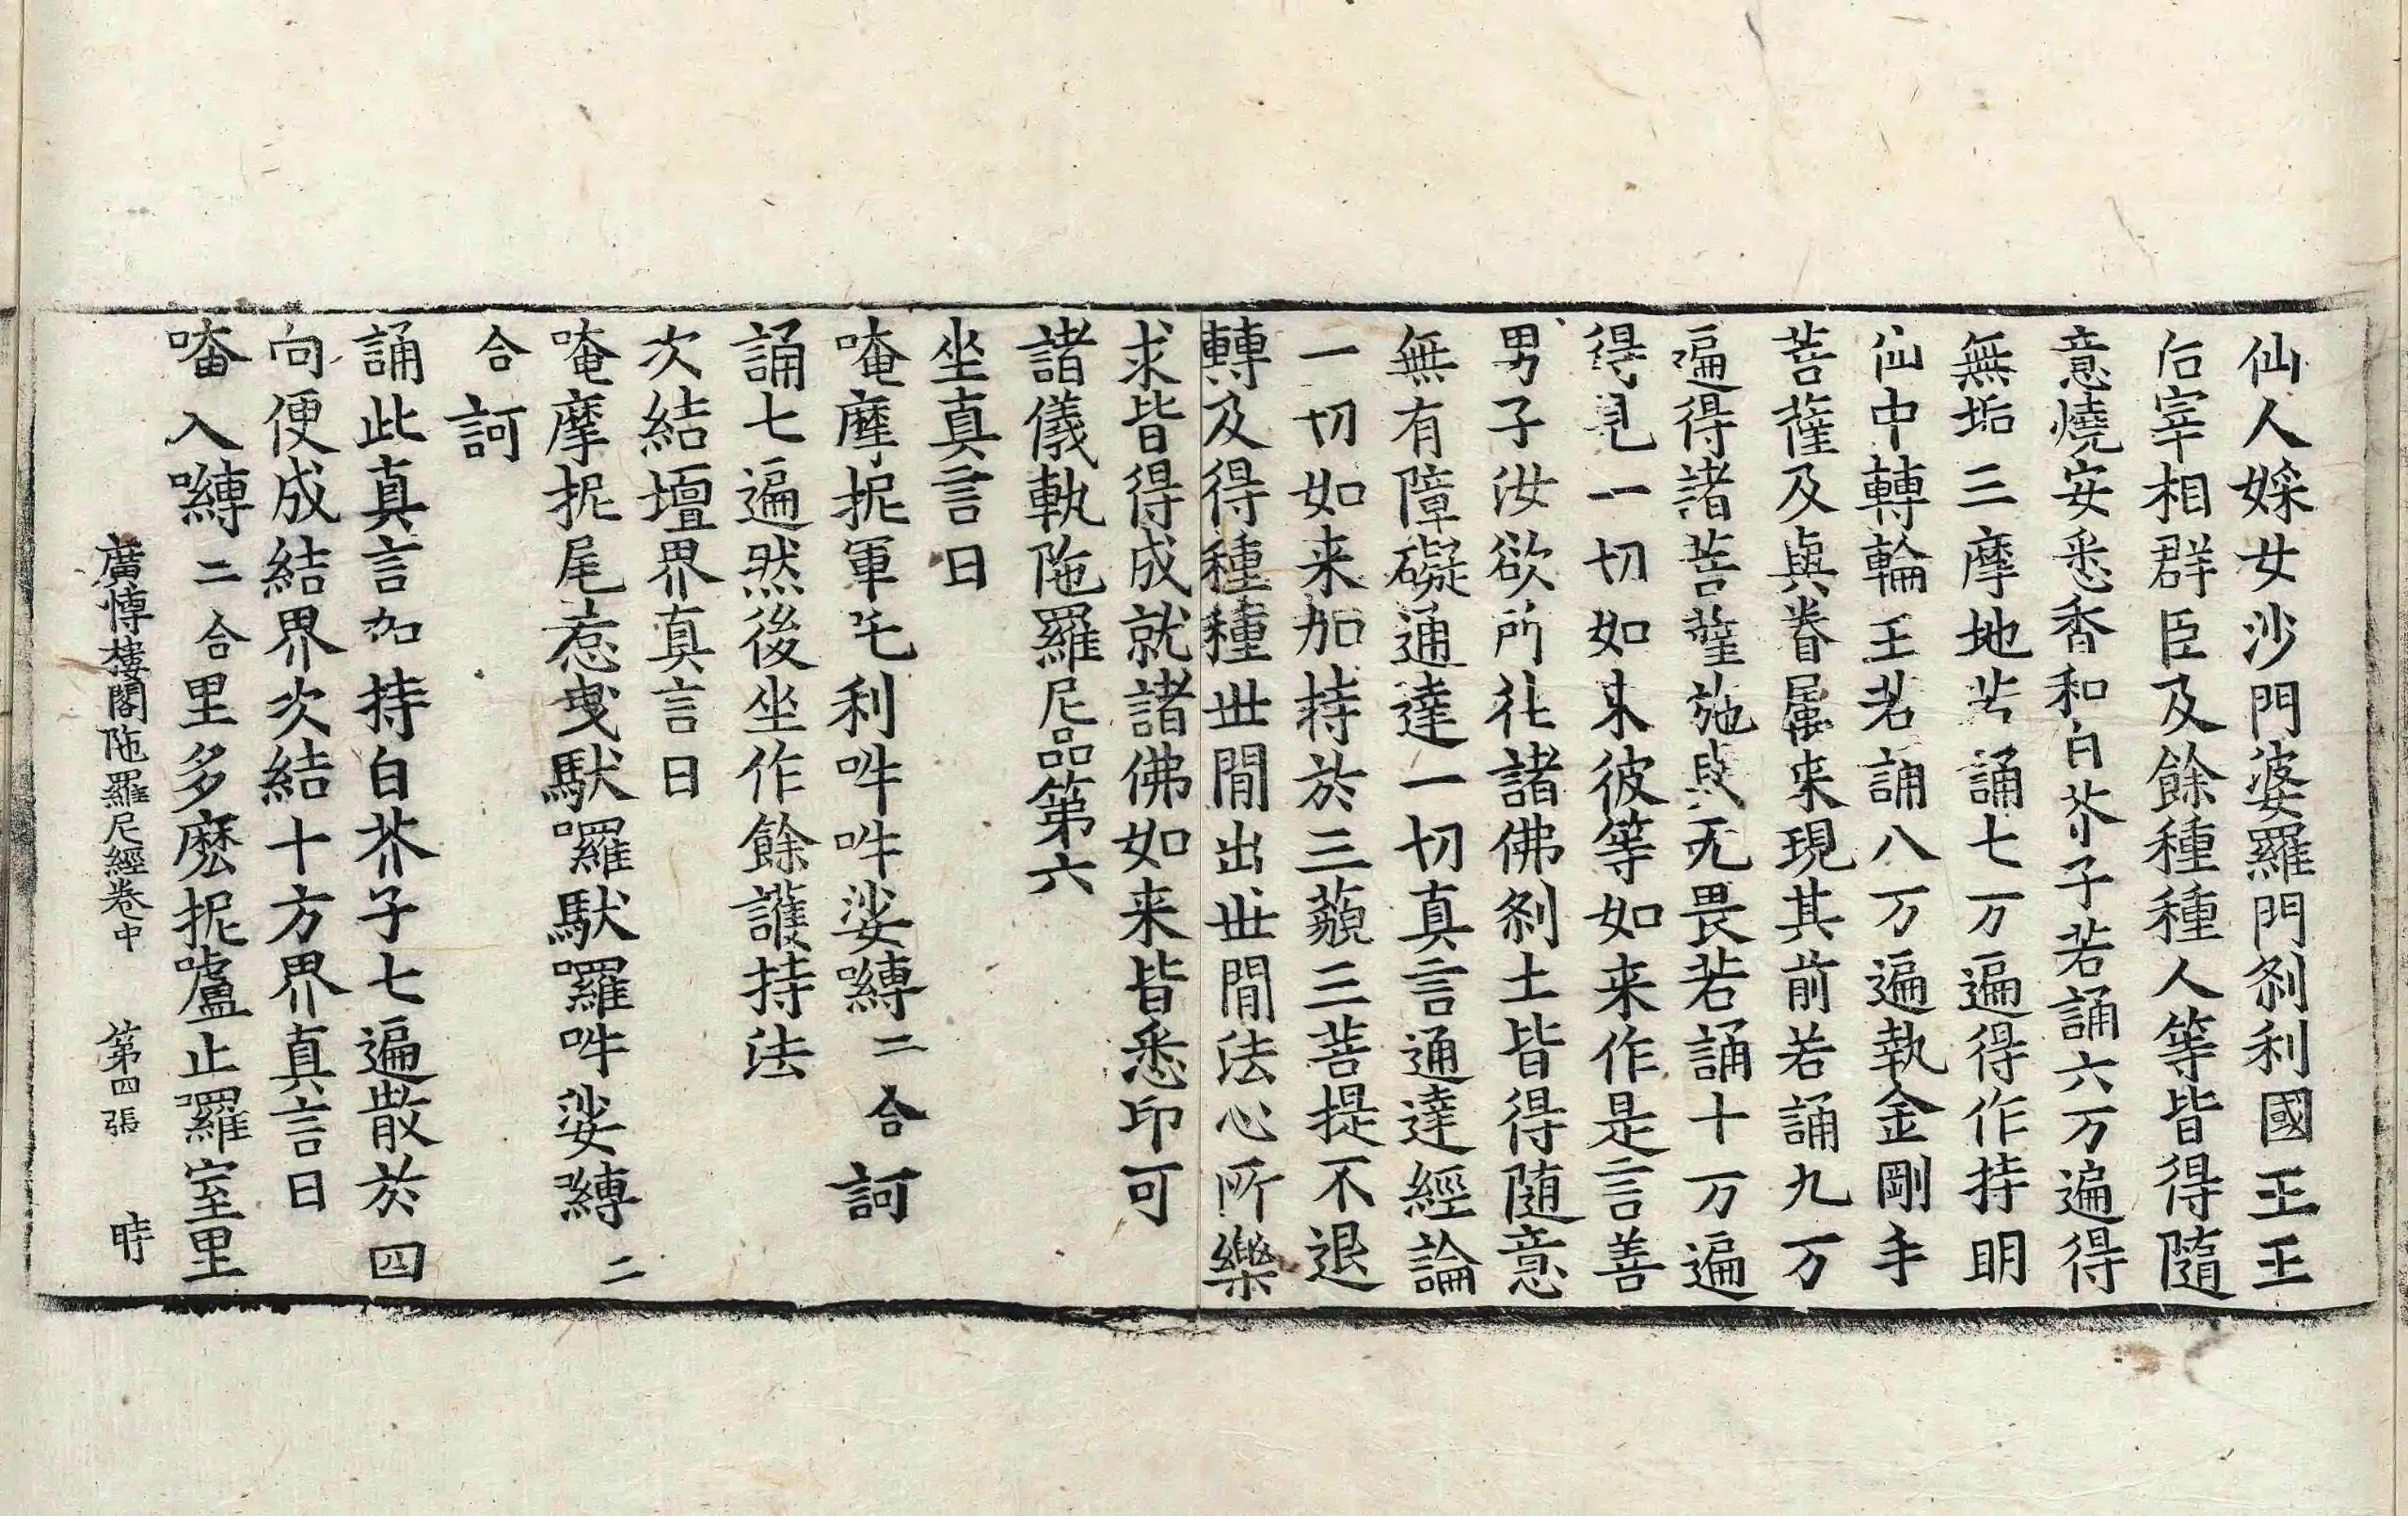 仙人婇女沙門婆羅門刹利國王王
后宰相群臣及餘種種人等皆得隨
意燒安悉香和白芥子若誦六万遍得
無垢三摩地若誦七万遍得作持明
仙中轉輪王若誦八万遍執金剛手
菩薩及與眷属来現其前若誦九万
遍得諸菩薩施與无畏若誦十万遍
得見一切如来彼等如来作是言善
男子汝欲所往諸佛刹土皆得随意
無有障礙通達一切真言通達經論
一切如来加持於三藐三菩提不退
轉及得種種世閒出世閒法心所樂
求皆得成就諸佛如来皆悉印可
諸儀軌陁羅尼品第六
坐真言曰
唵摩抳軍吒利吽吽娑嚩二合訶
誦七遍然後坐作餘護持法
次結壇界真言曰
唵摩抳尾惹曳馱囉馱囉吽娑嚩二
合訶
誦此真言加持白芥子七遍散於四
向便成結界次結十方界真言曰
唵入嚩二合里多麽抳嚧止囉室里
廣愽樓閣陁羅尼經卷中 第四張 時